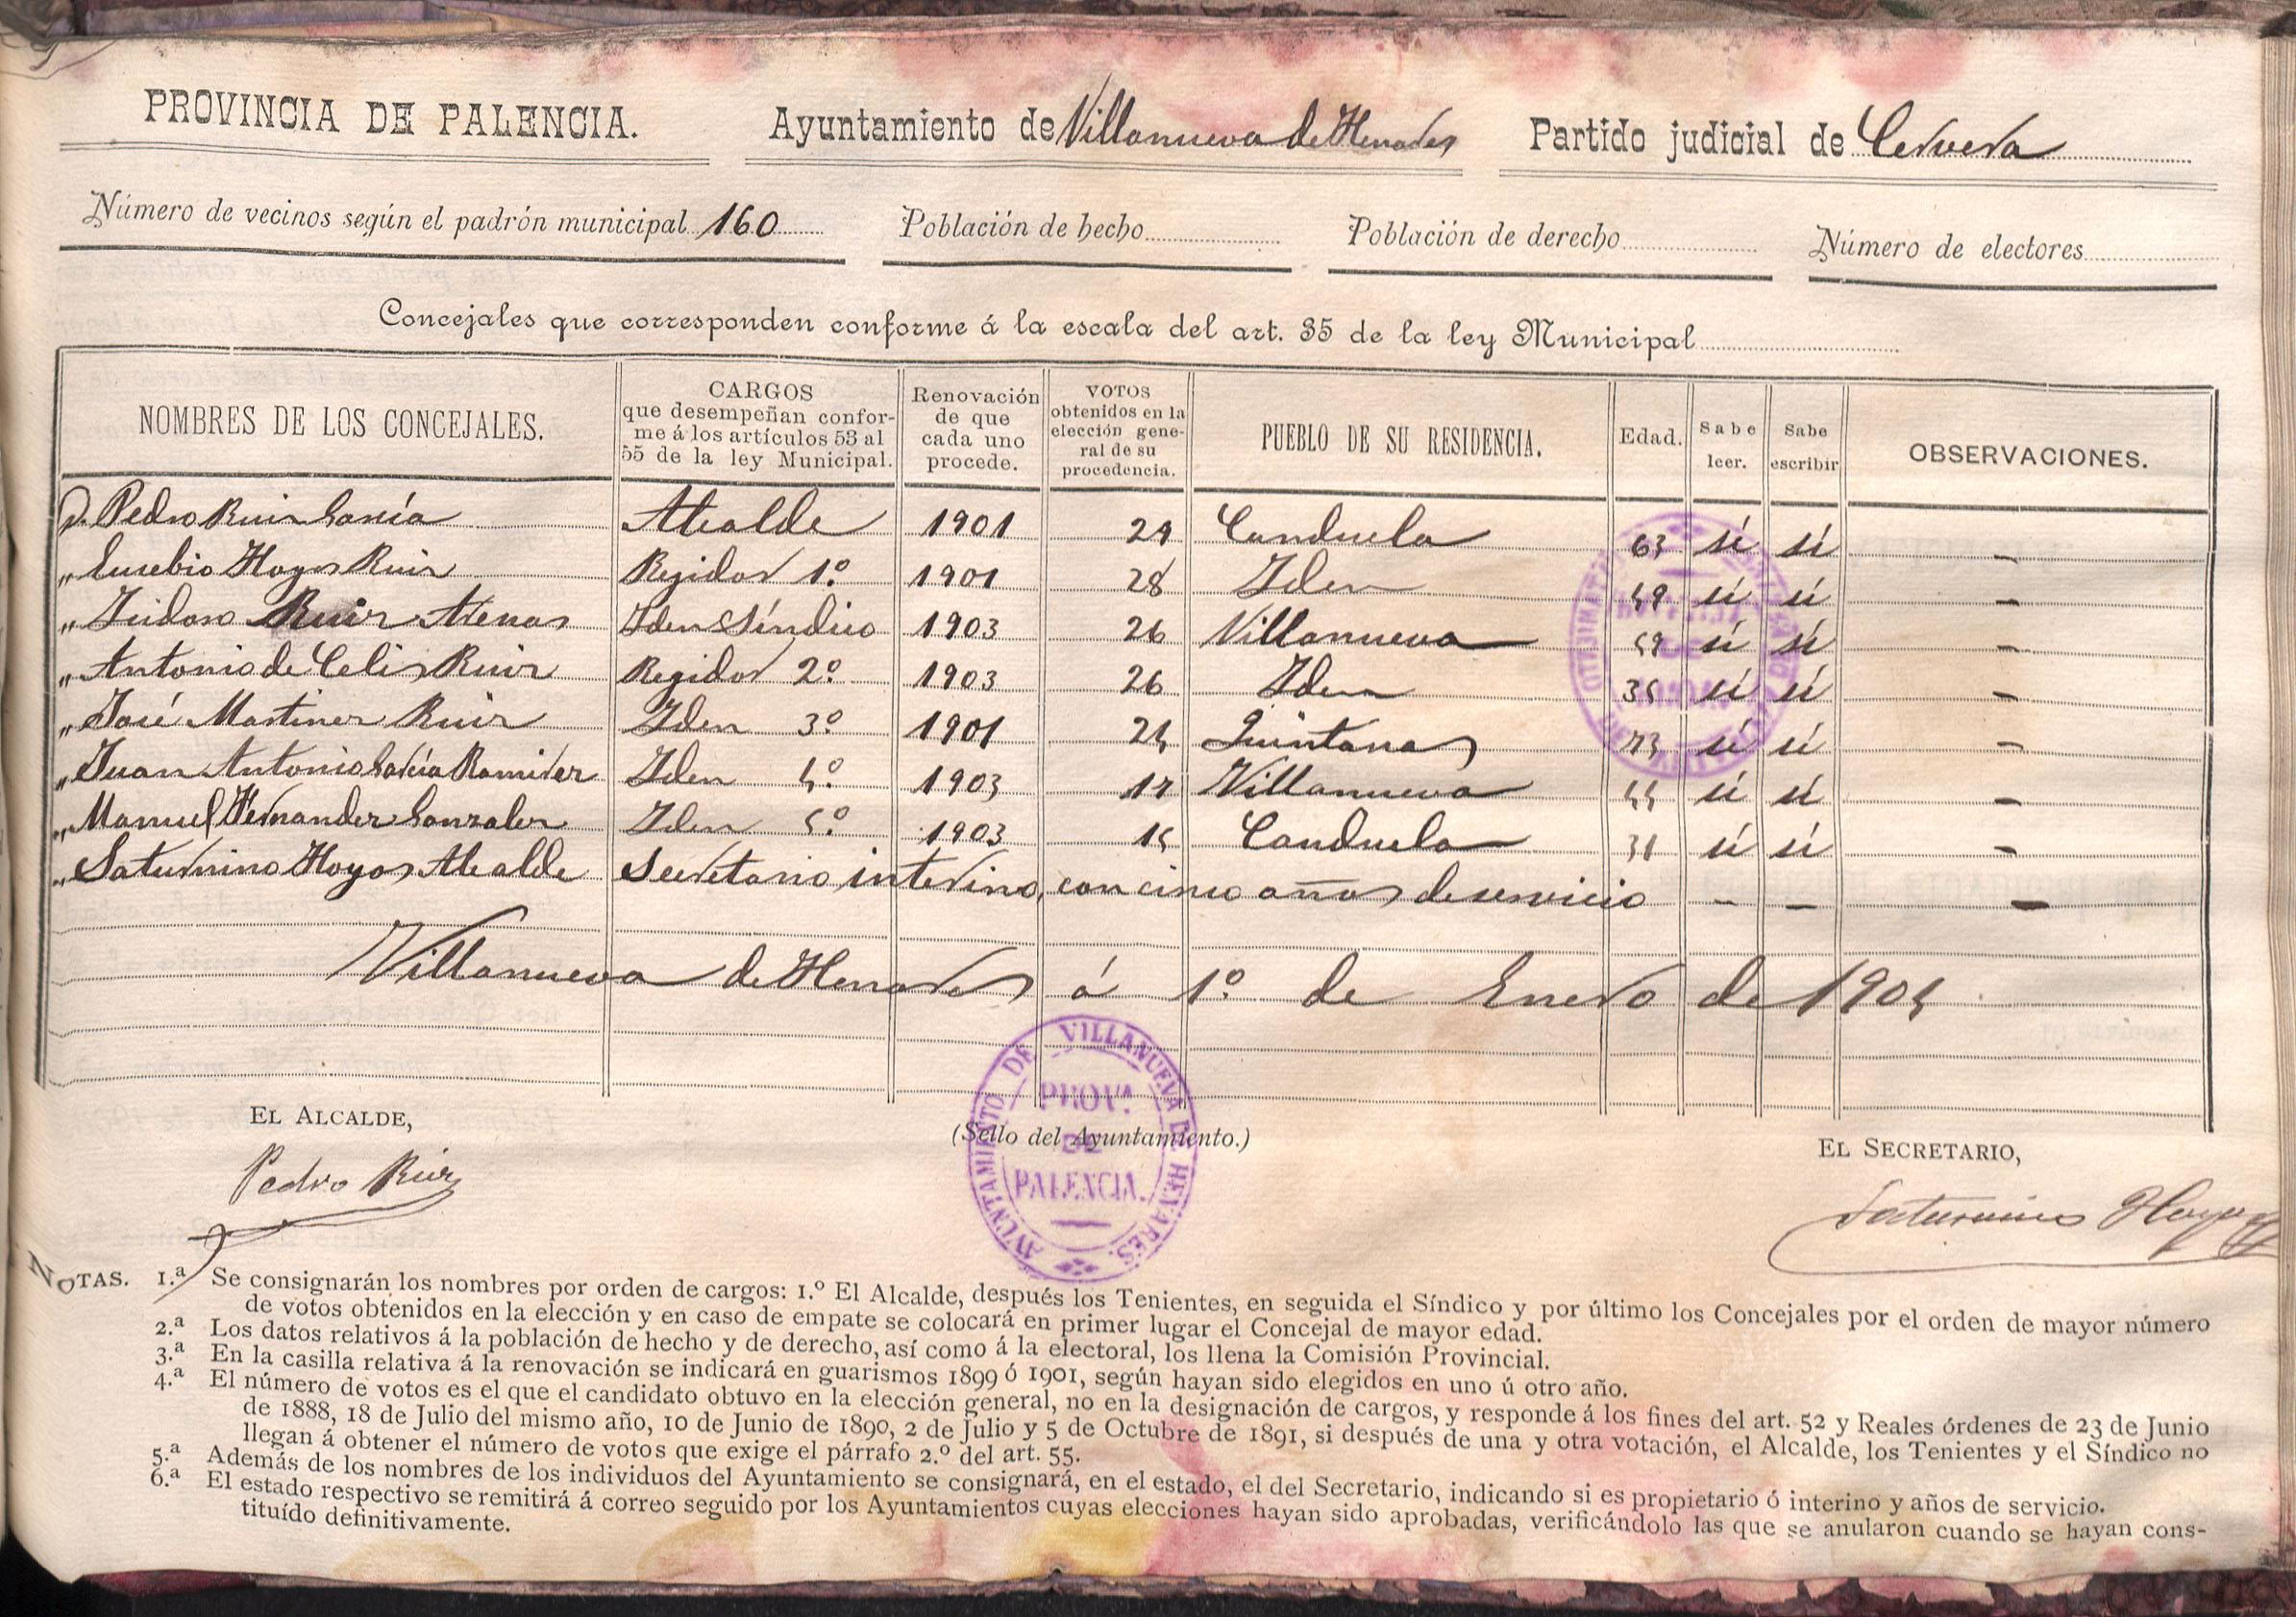 PROVINCIA DE PALENCIA. Ayuntamiento de Villanueva de Henares Partido judicial de Cervera
Número de vecinos según el padrón municipal 160 Población de hecho Población de derecho Número de electores
Concejales que corresponden conforme á la escala del art. 35 de la ley Municipal
NOMBRES DE LOS CONCEJALES. CARGOS que desempeñan conforme á los artículos 53 al 55 de la ley Municipal. Renovación de que cada uno procede. VOTOS obtenidos en la elección general de su procedencia. PUEBLO DE SU RESIDENCIA. Edad. Sabe leer. Sabe escribir OBSERVACIONES.
D. Pedro Ruiz García Alcalde 1901 Canduela 63 sí sí -
„ Eusebio Hoyos Ruiz Regidor 1.º 1901 28 Iden 49 sí sí -
„ Isidoro Ruiz Atenas Iden Síndico 1903 26 Villanueva sí sí -
„ Antonio de Celis Ruiz Regidor 2.º 1903 26 Iden 35 sí sí -
„ José Martinez Ruiz Iden 3.º 1901 Quintanas sí sí -
„ Juan Antonio García Ramirez Iden 4.º 1903 17 Villanueva 44 sí sí -
„ Manuel Fernandez Gonzalez Iden 5.º 1903 15 Canduela 31 sí sí -
„ Saturnino Hoyos Alcalde Secretario interino, con cinco años de servicio - - -
Villanueva de Henares á 1.º de Enero de 1904
EL ALCALDE,
Pedro Ruiz
(Sello del Ayuntamiento.)
AYUNTAMIENTO DE VILLANUEVA DE HENARES.
PROV.ª
DE
PALENCIA.
EL SECRETARIO,
Saturnino Hoyos
NOTAS. 1.ª Se consignarán los nombres por orden de cargos: 1.º El Alcalde, después los Tenientes, en seguida el Síndico y por último los Concejales por el orden de mayor número
de votos obtenidos en la elección y en caso de empate se colocará en primer lugar el Concejal de mayor edad.
2.ª Los datos relativos á la población de hecho y de derecho, así como á la electoral, los llena la Comisión Provincial.
3.ª En la casilla relativa á la renovación se indicará en guarismos 1899 ó 1901, según hayan sido elegidos en uno ú otro año.
4.ª El número de votos es el que el candidato obtuvo en la elección general, no en la designación de cargos, y responde á los fines del art. 52 y Reales órdenes de 23 de Junio
de 1888, 18 de Julio del mismo año, 10 de Junio de 1890, 2 de Julio y 5 de Octubre de 1891, si después de una y otra votación, el Alcalde, los Tenientes y el Síndico no
llegan á obtener el número de votos que exige el párrafo 2.º del art. 55.
5.ª Además de los nombres de los individuos del Ayuntamiento se consignará, en el estado, el del Secretario, indicando si es propietario ó interino y años de servicio.
6.ª El estado respectivo se remitirá á correo seguido por los Ayuntamientos cuyas elecciones hayan sido aprobadas, verificándolo las que se anularon cuando se hayan cons-
tituído definitivamente.